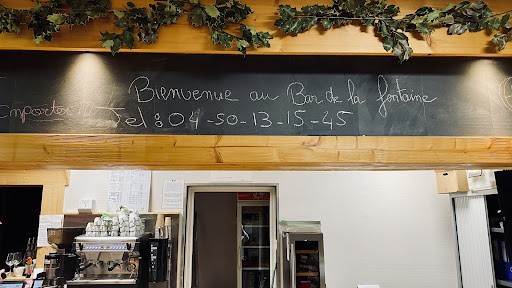 Bienvenue au Bar de la fontaine
emporter
Tel : 04-50-13-15-45